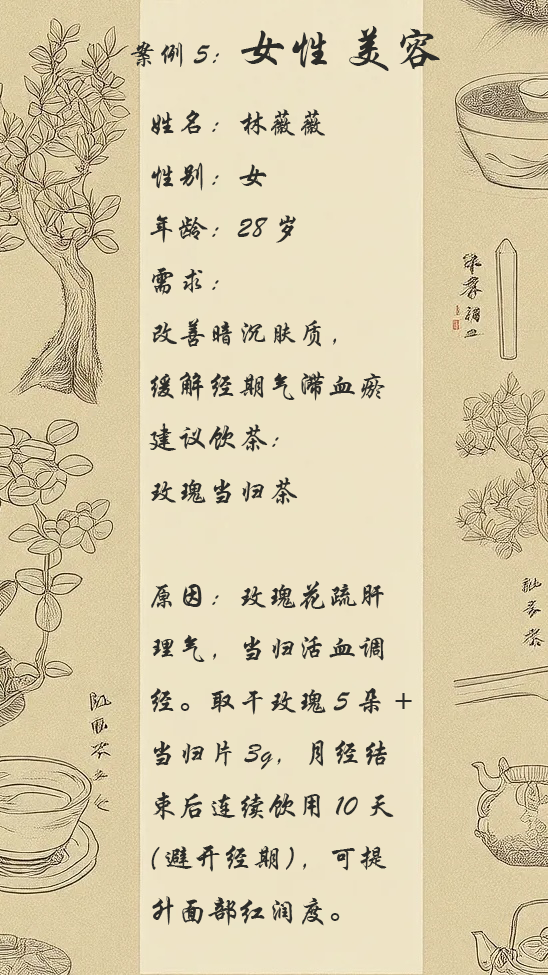 案例 5: 女性 美容
姓名: 林薇薇
性别: 女
年龄: 28 岁
需求:
改善暗沉肤质,
缓解经期气滞血瘀
建议饮茶:
玫瑰当归茶
原因: 玫瑰花疏肝
理气, 当归活血调
经。取干玫瑰 5 朵 +
当归片 3g, 月经结
束后连续饮用 10 天
(避开经期), 可提
升面部红润度。